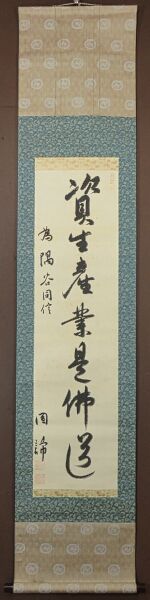 資生産業是佛道
為隅谷同信
圓諦